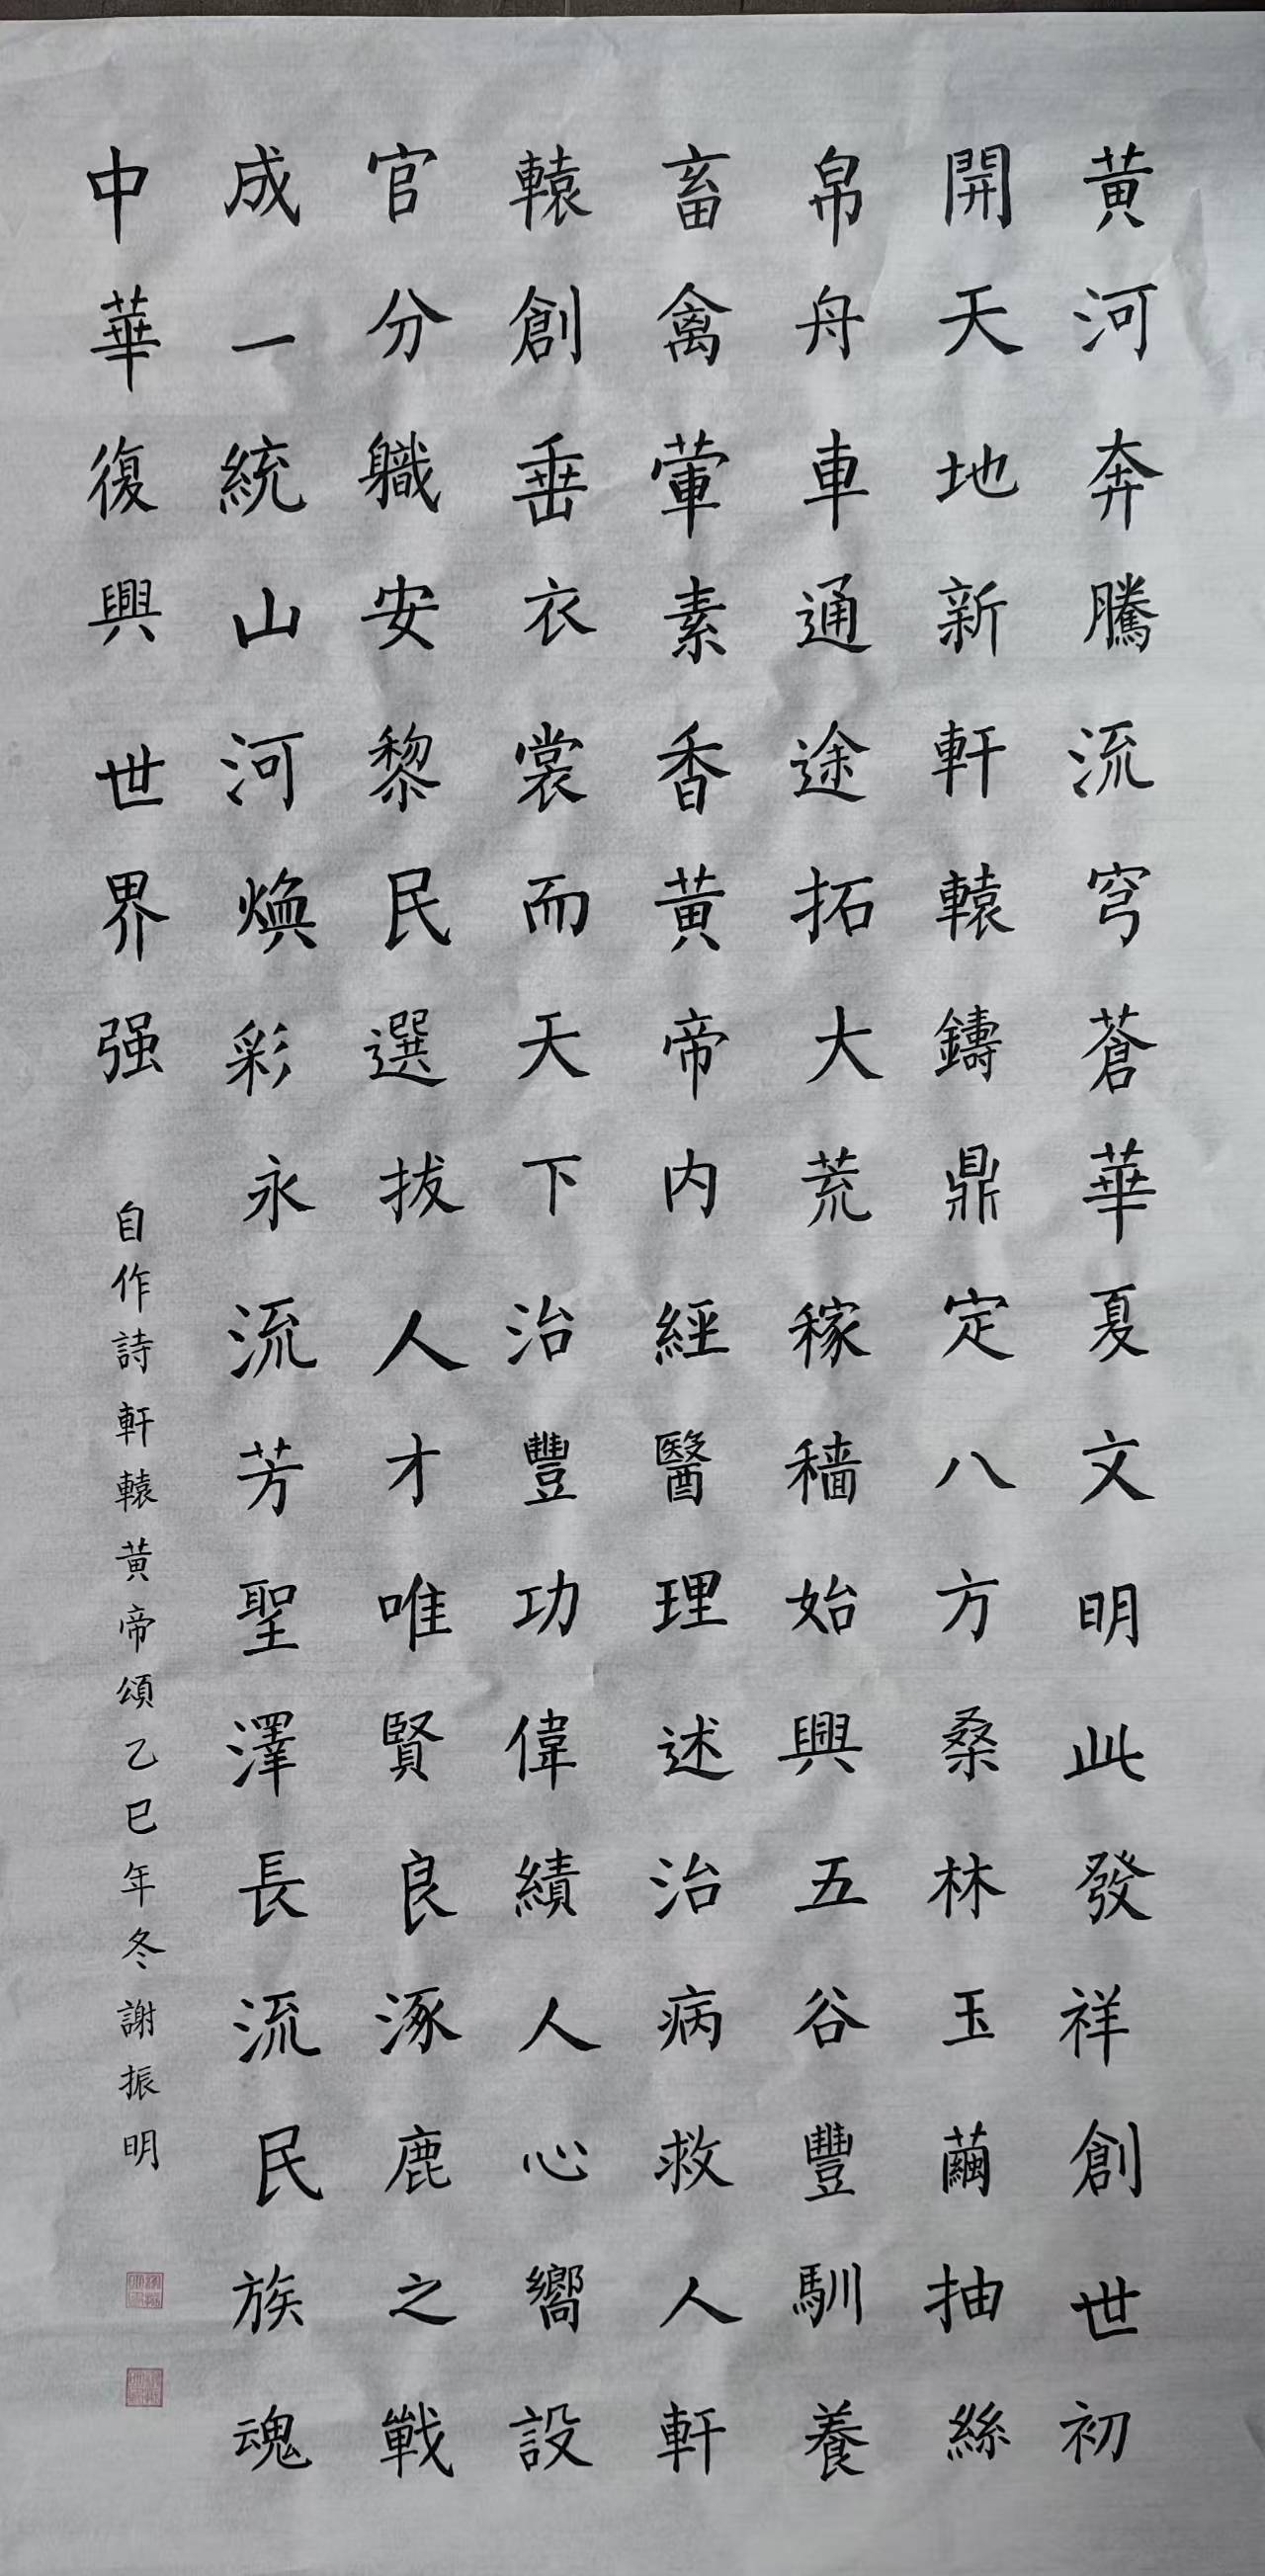 黃河奔騰流穹蒼華夏文明此發祥創世初
開天地新軒轅鑄鼎定八方桑林玉繭抽絲
帛舟車通途拓大荒稼穡始興五谷豐馴養
畜禽葷素香黃帝内經醫理述治病救人軒
轅創垂衣裳而天下治豐功偉績人心嚮設
官分職安黎民選拔人才唯賢良涿鹿之戰
成一統山河煥彩永流芳聖澤長流民族魂
中華復興世界强
自作詩軒轅黃帝頌乙巳年冬謝振明